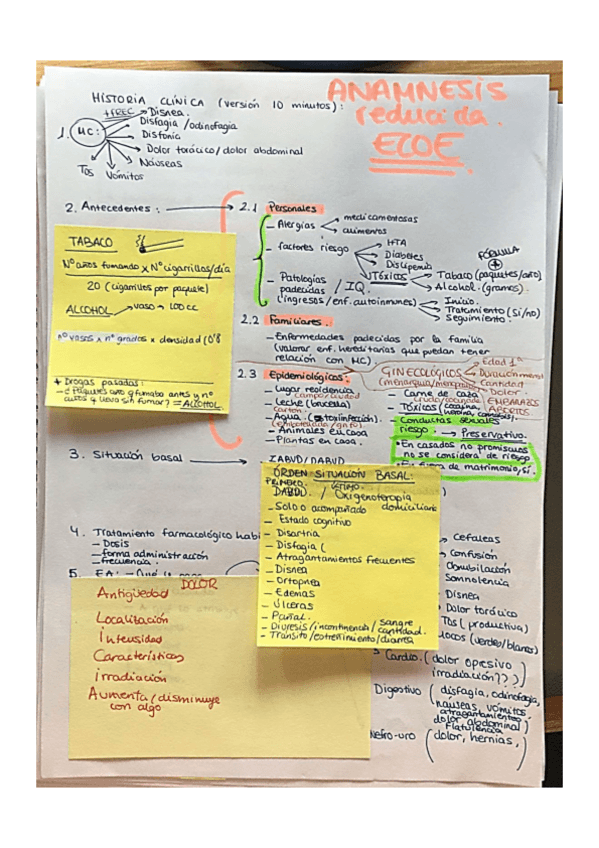 ANAMNESIS
reducida.
ECOE
HISTORIA CLÍNICA (versión 10 minutos):
+FREC → Disnea
1. MC:
Disfagia/odinofagia
Disfonía
Dolor torácico/dolor abdominal
Náuseas
Vómitos
Tos
2. Antecedentes: → 2.1 Personales
- Alergias
medicamentosas
alimentos
- factores riesgo
HTA
Diabetes
Dislipemia
Tóxicos
FÓRMULA
+
Tabaco (paquetes/año)
Alcohol (gramos).
- Patologías
padecidas / IQ.
(ingresos/enf. autoinmunes)
Inicio.
Tratamiento (sí/no)
Seguimiento.
TABACO
Nº años fumando x Nº cigarrillos/día
20 (cigarrillos por paquete)
ALCOHOL → vaso → 100 cc
nº vasos x nº grados x densidad (0'8
+ Drogas pasadas:
= ALCOHOL.
2.2 Familiares:
- Enfermedades padecidas por la familia
(valorar enf. hereditarias que puedan tener
relación con MC)
2.3 Epidemiológicos:
- Lugar residencia
campo/ciudad
- Leche (brucella)
cartón.
- Agua
- Animales en casa
- Plantas en casa.
GINECOLÓGICOS
(menarquia/menopausia)
Edad 1ª
Cantidad
Dolor.
EMBARAZOS
ABORTOS
- Carne de caza
- Tóxicos (cocaína,
- Conductas sexuales
riesgo: → Preservativo.
• En casados no promiscuos
no se considera de riesgo
• En fuera de matrimonio, sí.
3. Situación basal →
IABVD/DABVD
ÓRDEN SITUACIÓN BASAL:
PRIMERO. ÚLTIMO
DABVD. / Oxigenoterapia
domiciliaria
- Solo o acompañado
- Estado cognitivo
- Disartria
- Disfagia (
- Atragantamientos frecuentes
- Disnea
- Ortopnea
- Edemas
- Úlceras
- Pañal.
- Diuresis/incontinencia/sangre
cantidad.
- Tránsito/estreñimiento/diarrea
4. Tratamiento farmacológico habi
- Dosis
- forma administración
- frecuencia.
5. EA:
DOLOR
Antigüedad
Localización
Intensidad
Características
irradiación
Aumenta/disminuye
con algo
Cefaleas
Confusión
Obnubilación
Somnolencia
Disnea
Dolor torácico
Tos (productiva)
mocos (verdes/blancos)
Cardio. (dolor opresivo
irradiación??)
Digestivo (disfagia, odinofagia,
náuseas, vómitos
atragantamientos
dolor abdominal)
Flatulencia
Nefro-uro (dolor, hernias,